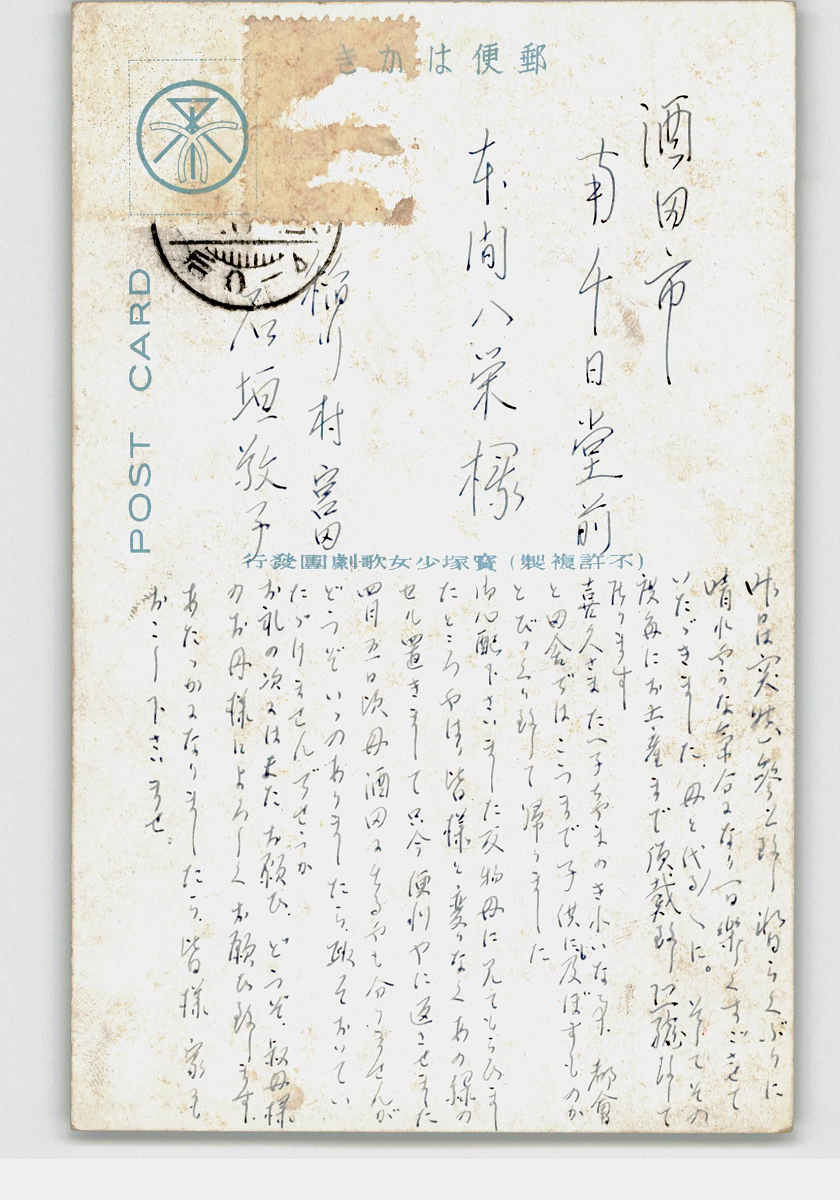 郵便はかき
POST CARD
酒田市
南千日堂前
本間八栄様
稲川村宮田
石垣敬子
(不許複製) 寳塚少女歌劇團發行
昨日は突然参上致し 久しぶりに
晴れやかな気分になり一日楽しくすごさせて
いたゞきました、母と代る／＼に。そしてその
度毎にお土産まで頂戴致し恐縮致して
居ります
喜久さまた子ちやまのきれいな事 都會
と田舎ではこうまで子供に及ぼすものか
とびつくり致して帰りました
御心配下さいました反物母に見てもらひまし
たところやはり皆様と変りなくあの縁の
セル置きまして只今 やに返させました
四月五日頃母酒田に出るやも分りませんが
どうぞいゝのありましたら、取つておいてい
たゞけませんでせうか
お礼の次には又たお願ひ、どうぞ、叔母様
のお母様によろしくお願ひ致します
あたゝかになりましたら、皆様
おこし下さいませ。